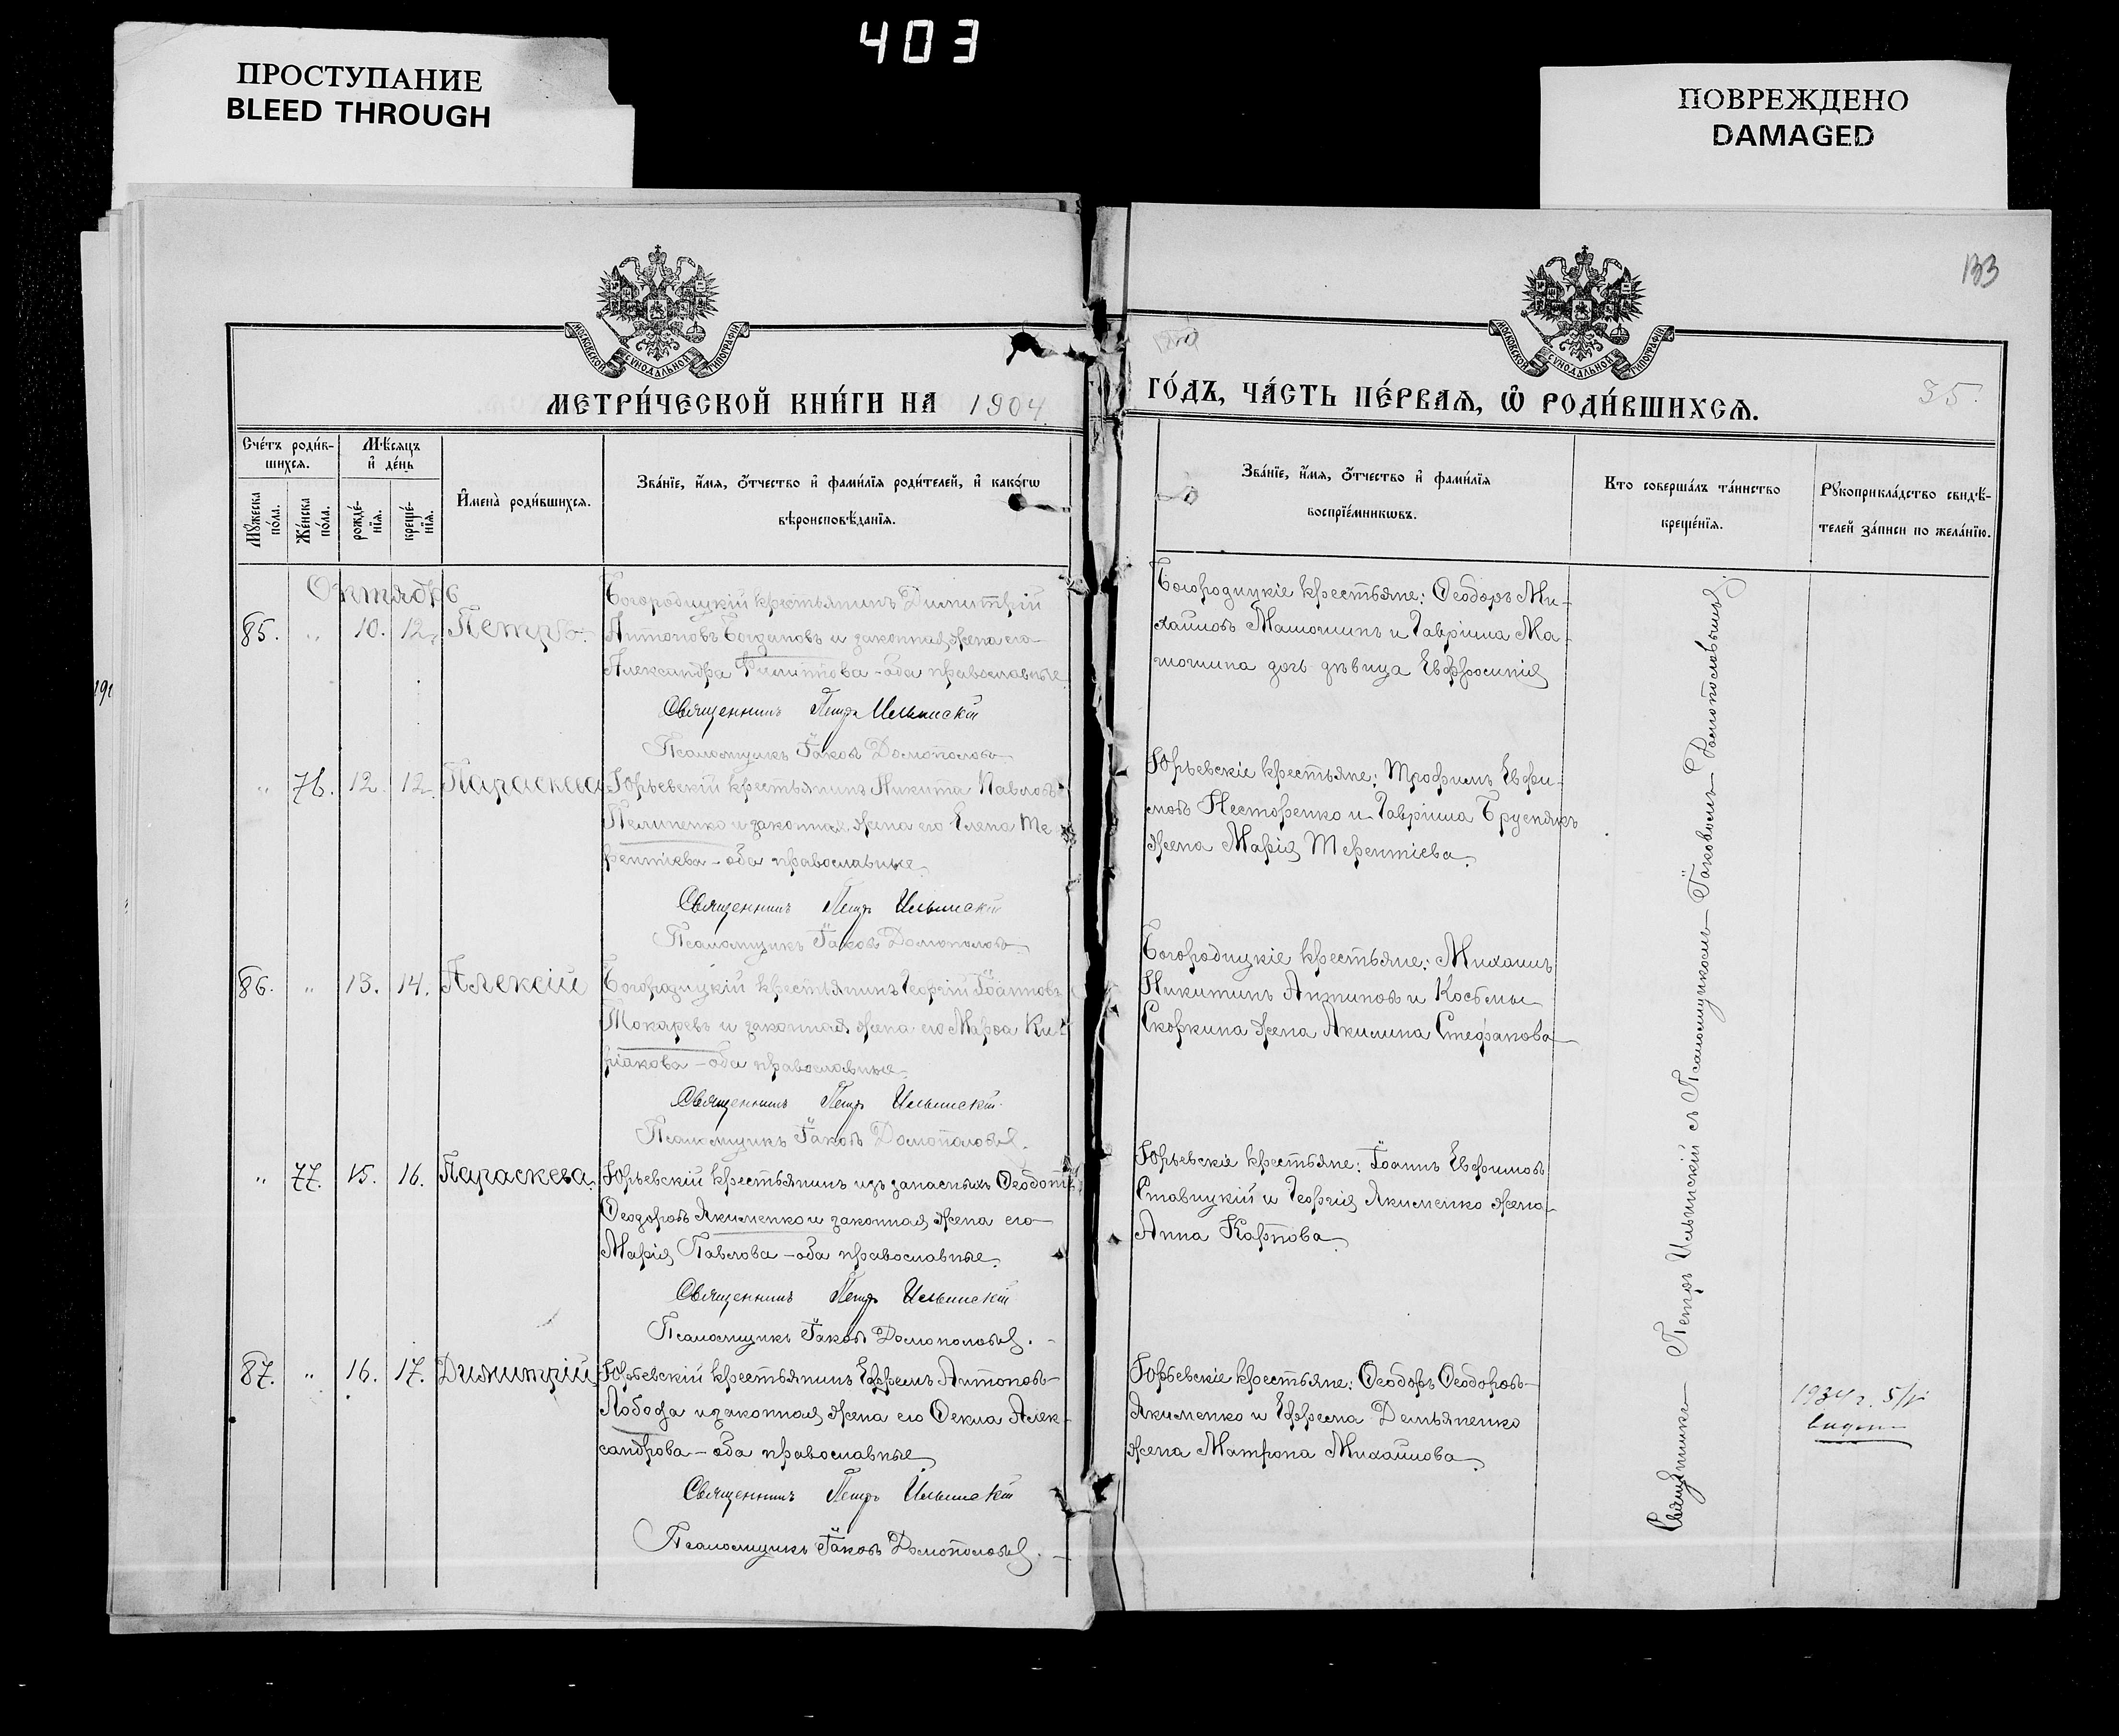 403
ПРОСТУПАНИЕ
BLEED THROUGH
ПОВРЕЖДЕНО
DAMAGED
133
МОСКОВСКОЙ СУНОДАЛЬНОЙ ТИПОГРАФІИ
МОСКОВСКОЙ СУНОДАЛЬНОЙ ТИПОГРАФІИ
МЕТРИ́ЧЕСКОЙ КНИ́ГИ НА 1904
ГО́ДЪ, ЧА́СТЬ ПЕ́РВАЯ, Ѡ҆ РОДИ́ВШИХСЯ.
35.
Сче́тъ роди́в-
шихся.
Мѣ́сяцъ
и҆ де́нь
Мꙋ́жеска по́ла.
Же́нска по́ла.
рожде́-
нїя.
креще́-
нїя.
И҆мена̀ роди́вшихся.
Зва́нїе, и҆́мя, ѻ҆́тчество и҆ фами́лїя роди́телей, и҆ како́гѡ
вѣроисповѣ́данїя.
Зва́нїе, и҆́мя, ѻ҆́тчество и҆ фами́лїя
воспрїе́мникѡвъ.
Кто̀ соверша́лъ та́инство
креще́нїя.
Рꙋкоприкла́дство свидѣ́-
телей за́писи по жела́нїю.
Октябрь
85. " 10. 12. Петръ.
Богородицкій крестьянинъ Димитрій
Антоновъ Богдановъ и законная жена его
Александра Филиппова - оба православные
Священникъ Петръ Ильинскій
Псаломщикъ Іаковъ
Богородицкіе крестьяне: Ѳеодоръ Ми-
хаиловъ и Гавріила Ма-
дочь дѣвица Евфросинія
" 76. 12. 12. Параскева
Юрьевскій крестьянинъ Никита Павловъ
Пелипенко и законная жена его Елена Те-
рентіева - оба православные.
Священникъ Петръ Ильинскій
Псаломщикъ Іаковъ
Юрьевскіе крестьяне: Трофимъ Евфи-
мовъ Несторенко и Гавріила
жена Марія Терентіева.
86. " 13. 14. Алексій
Богородицкій крестьянинъ Георгій Іоанновъ
Токаревъ и законная жена его Марѳа Ки-
ріакова - оба православные.
Священникъ Петръ Ильинскій
Псаломщикъ Іаковъ
Богородицкіе крестьяне: Михаилъ
Никитинъ Антиповъ и Космы
Скоркина жена Акилина Стефанова
" 77. 15. 16. Параскева.
Юрьевскій крестьянинъ изъ запасныхъ Ѳеодотъ
Ѳеодоровъ Якименко и законная жена его
Марія Павлова - оба православные.
Священникъ Петръ Ильинскій
Псаломщикъ Іаковъ
Юрьевскіе крестьяне: Іоаннъ Евфимовъ
Ставицкій и Георгія Якименко жена
Анна Карпова
87. " 16. 17. Димитрій
Юрьевскій крестьянинъ Ефремъ Антоновъ
Лобода и законная жена его Ѳекла Алек-
сандрова - оба православные
Священникъ Петръ Ильинскій
Псаломщикъ Іаковъ
Юрьевскіе крестьяне: Ѳеодоръ Ѳеодоровъ
Якименко и Ефрема Демьяненко
жена Матрона Михаилова
Священникъ Петръ Ильинскій съ Псаломщикомъ Іаковомъ
1934 г.